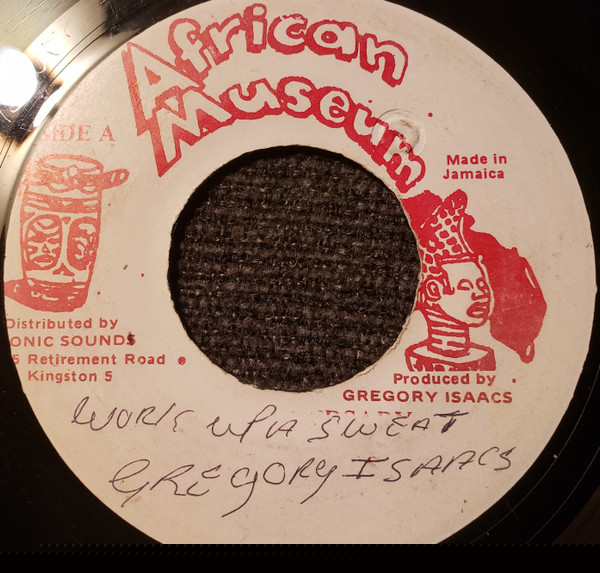 African
Museum
SIDE A
Made in
Jamaica
Distributed by
ONIC SOUNDS
5 Retirement Road
Kingston 5
Produced by
GREGORY ISAACS
WORK UP A SWEAT
GREGORY ISAACS